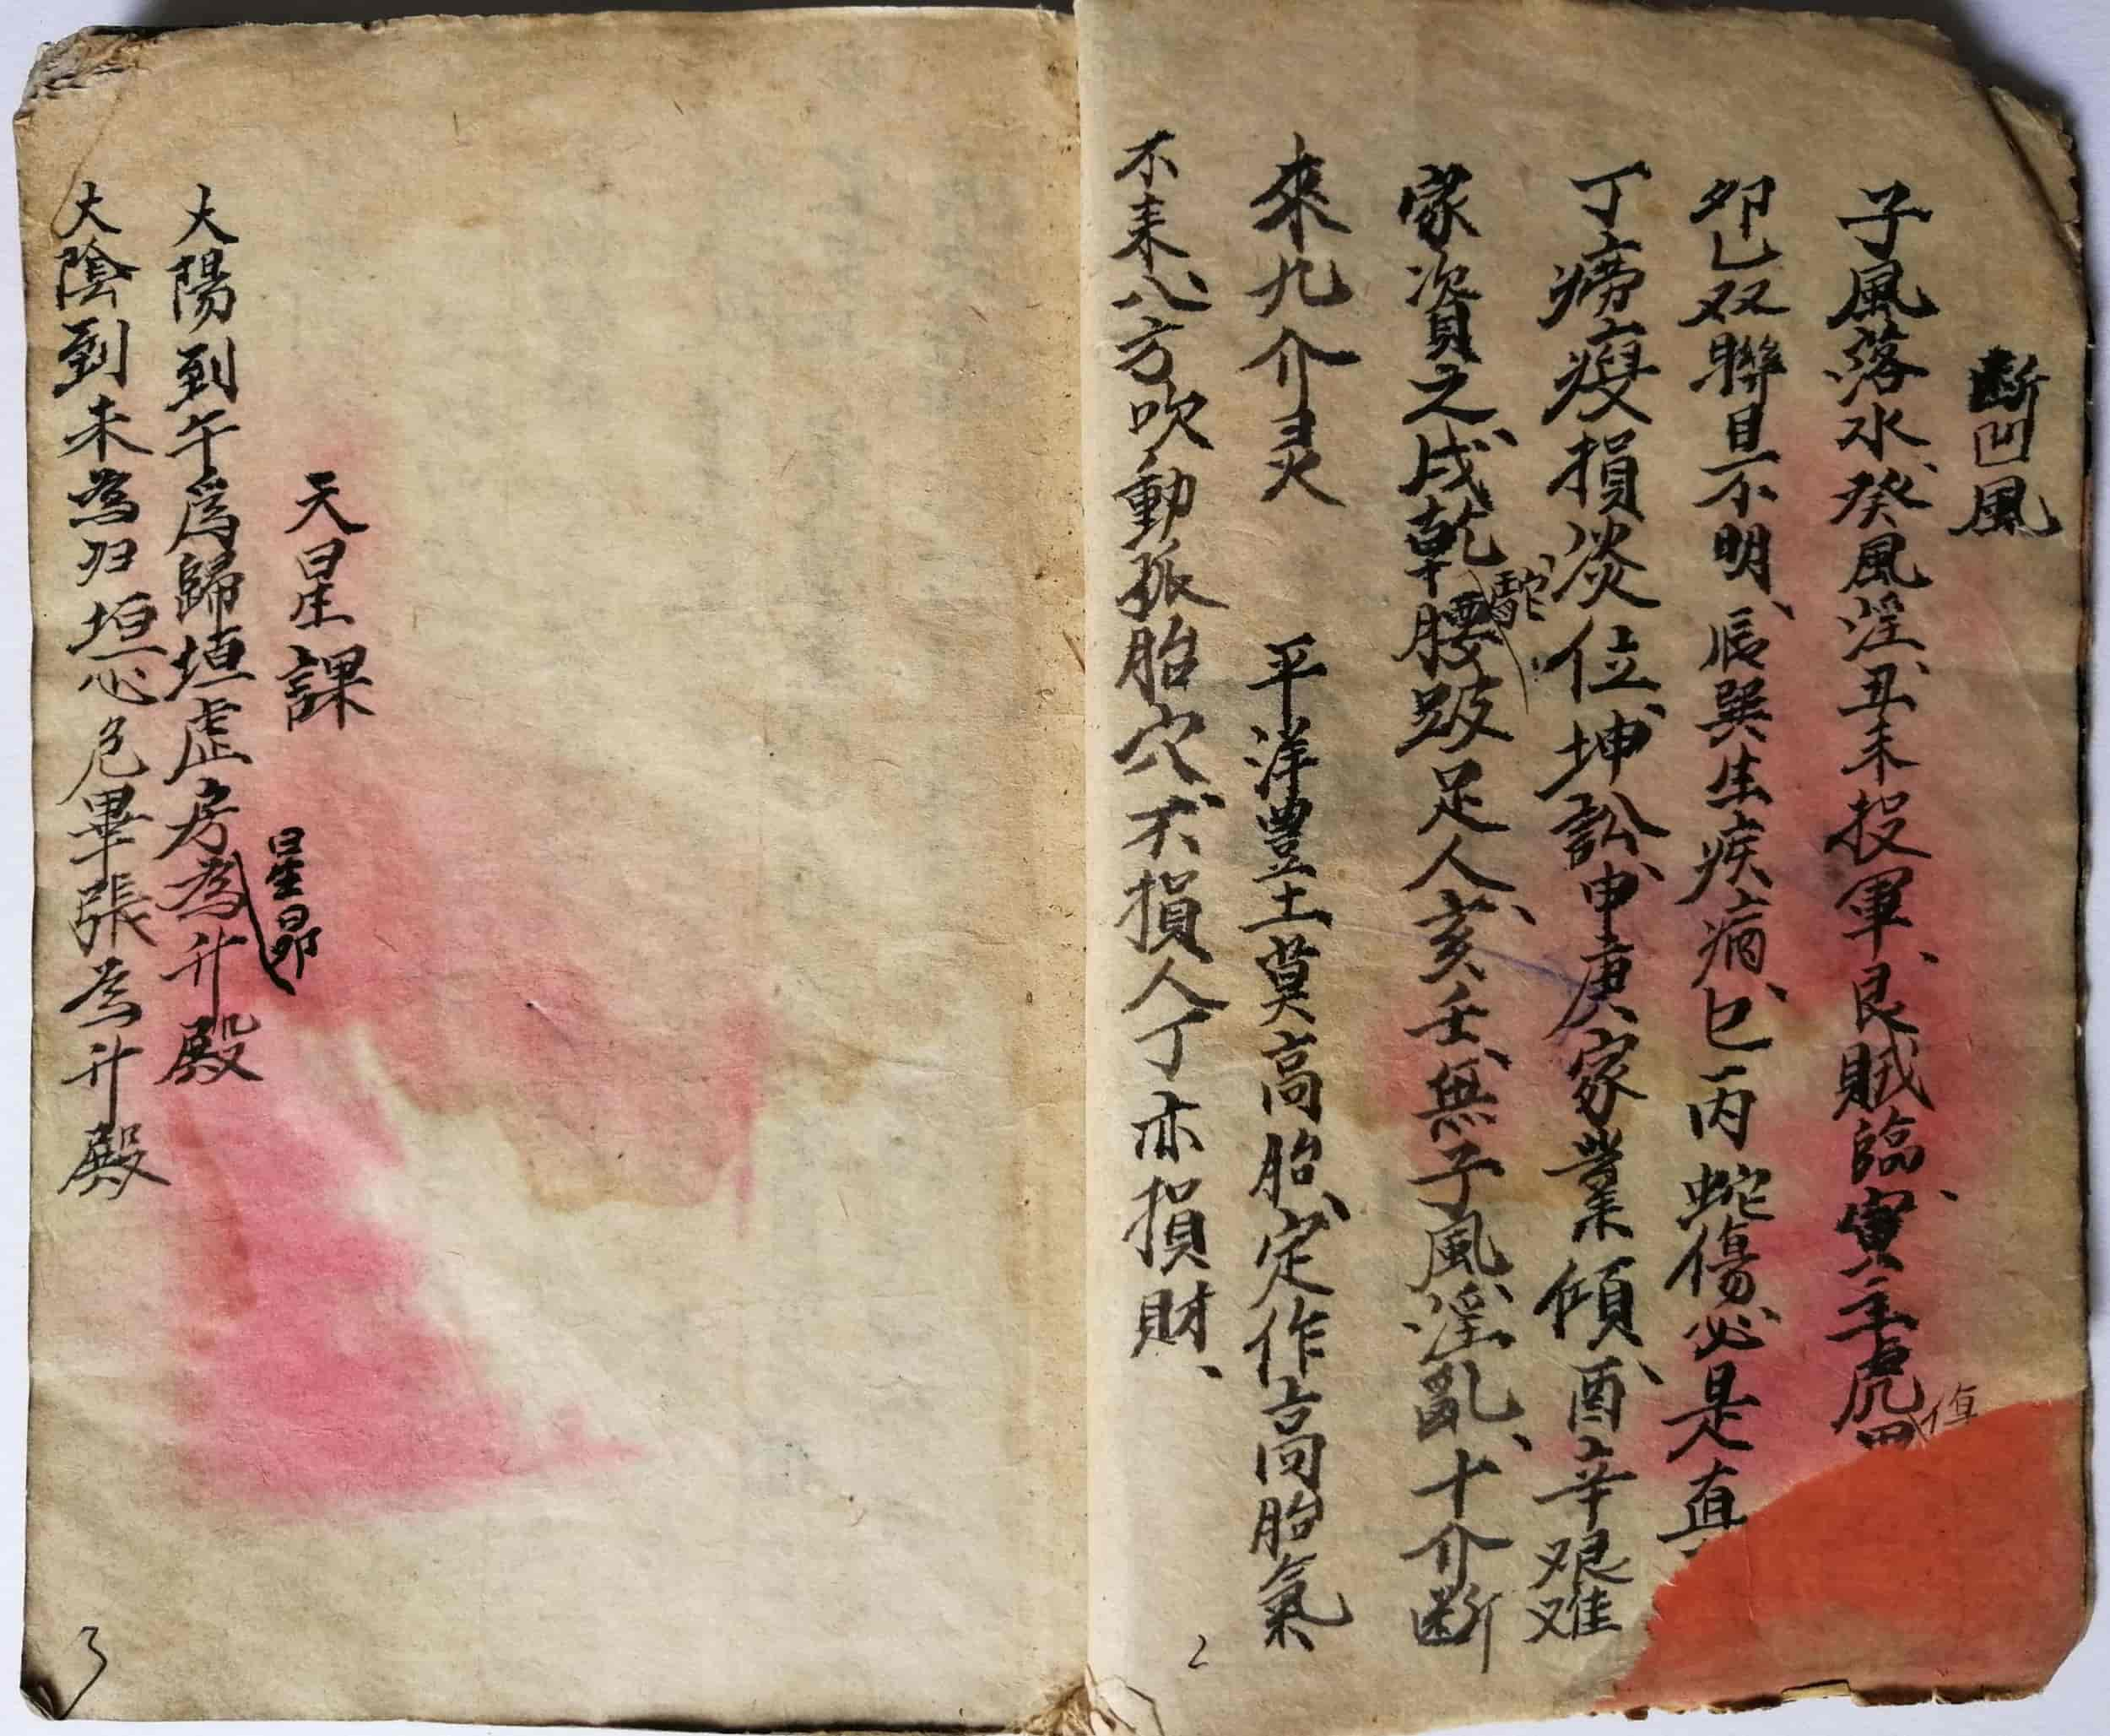 斷凹風
子風落水、癸風淫、丑未投軍、艮賊臨、寅主虎
傷
卯乙双聯目不明、辰巽生疾病、巳丙蛇傷必是真
丁癆瘦損災位、坤訟、申庚家業傾、酉辛艰难
家資之、戌乾腰跛足人、亥壬無子風淫亂、十介断
駝
來九介灵
平洋豊土莫高胎、定作高胎氣
不來、八方吹動孤胎穴、不損人丁亦損財、
2
天星課
大陽到午爲歸垣虚房為升殿
星昴
大陰到未為归垣心危畢張為升殿
3